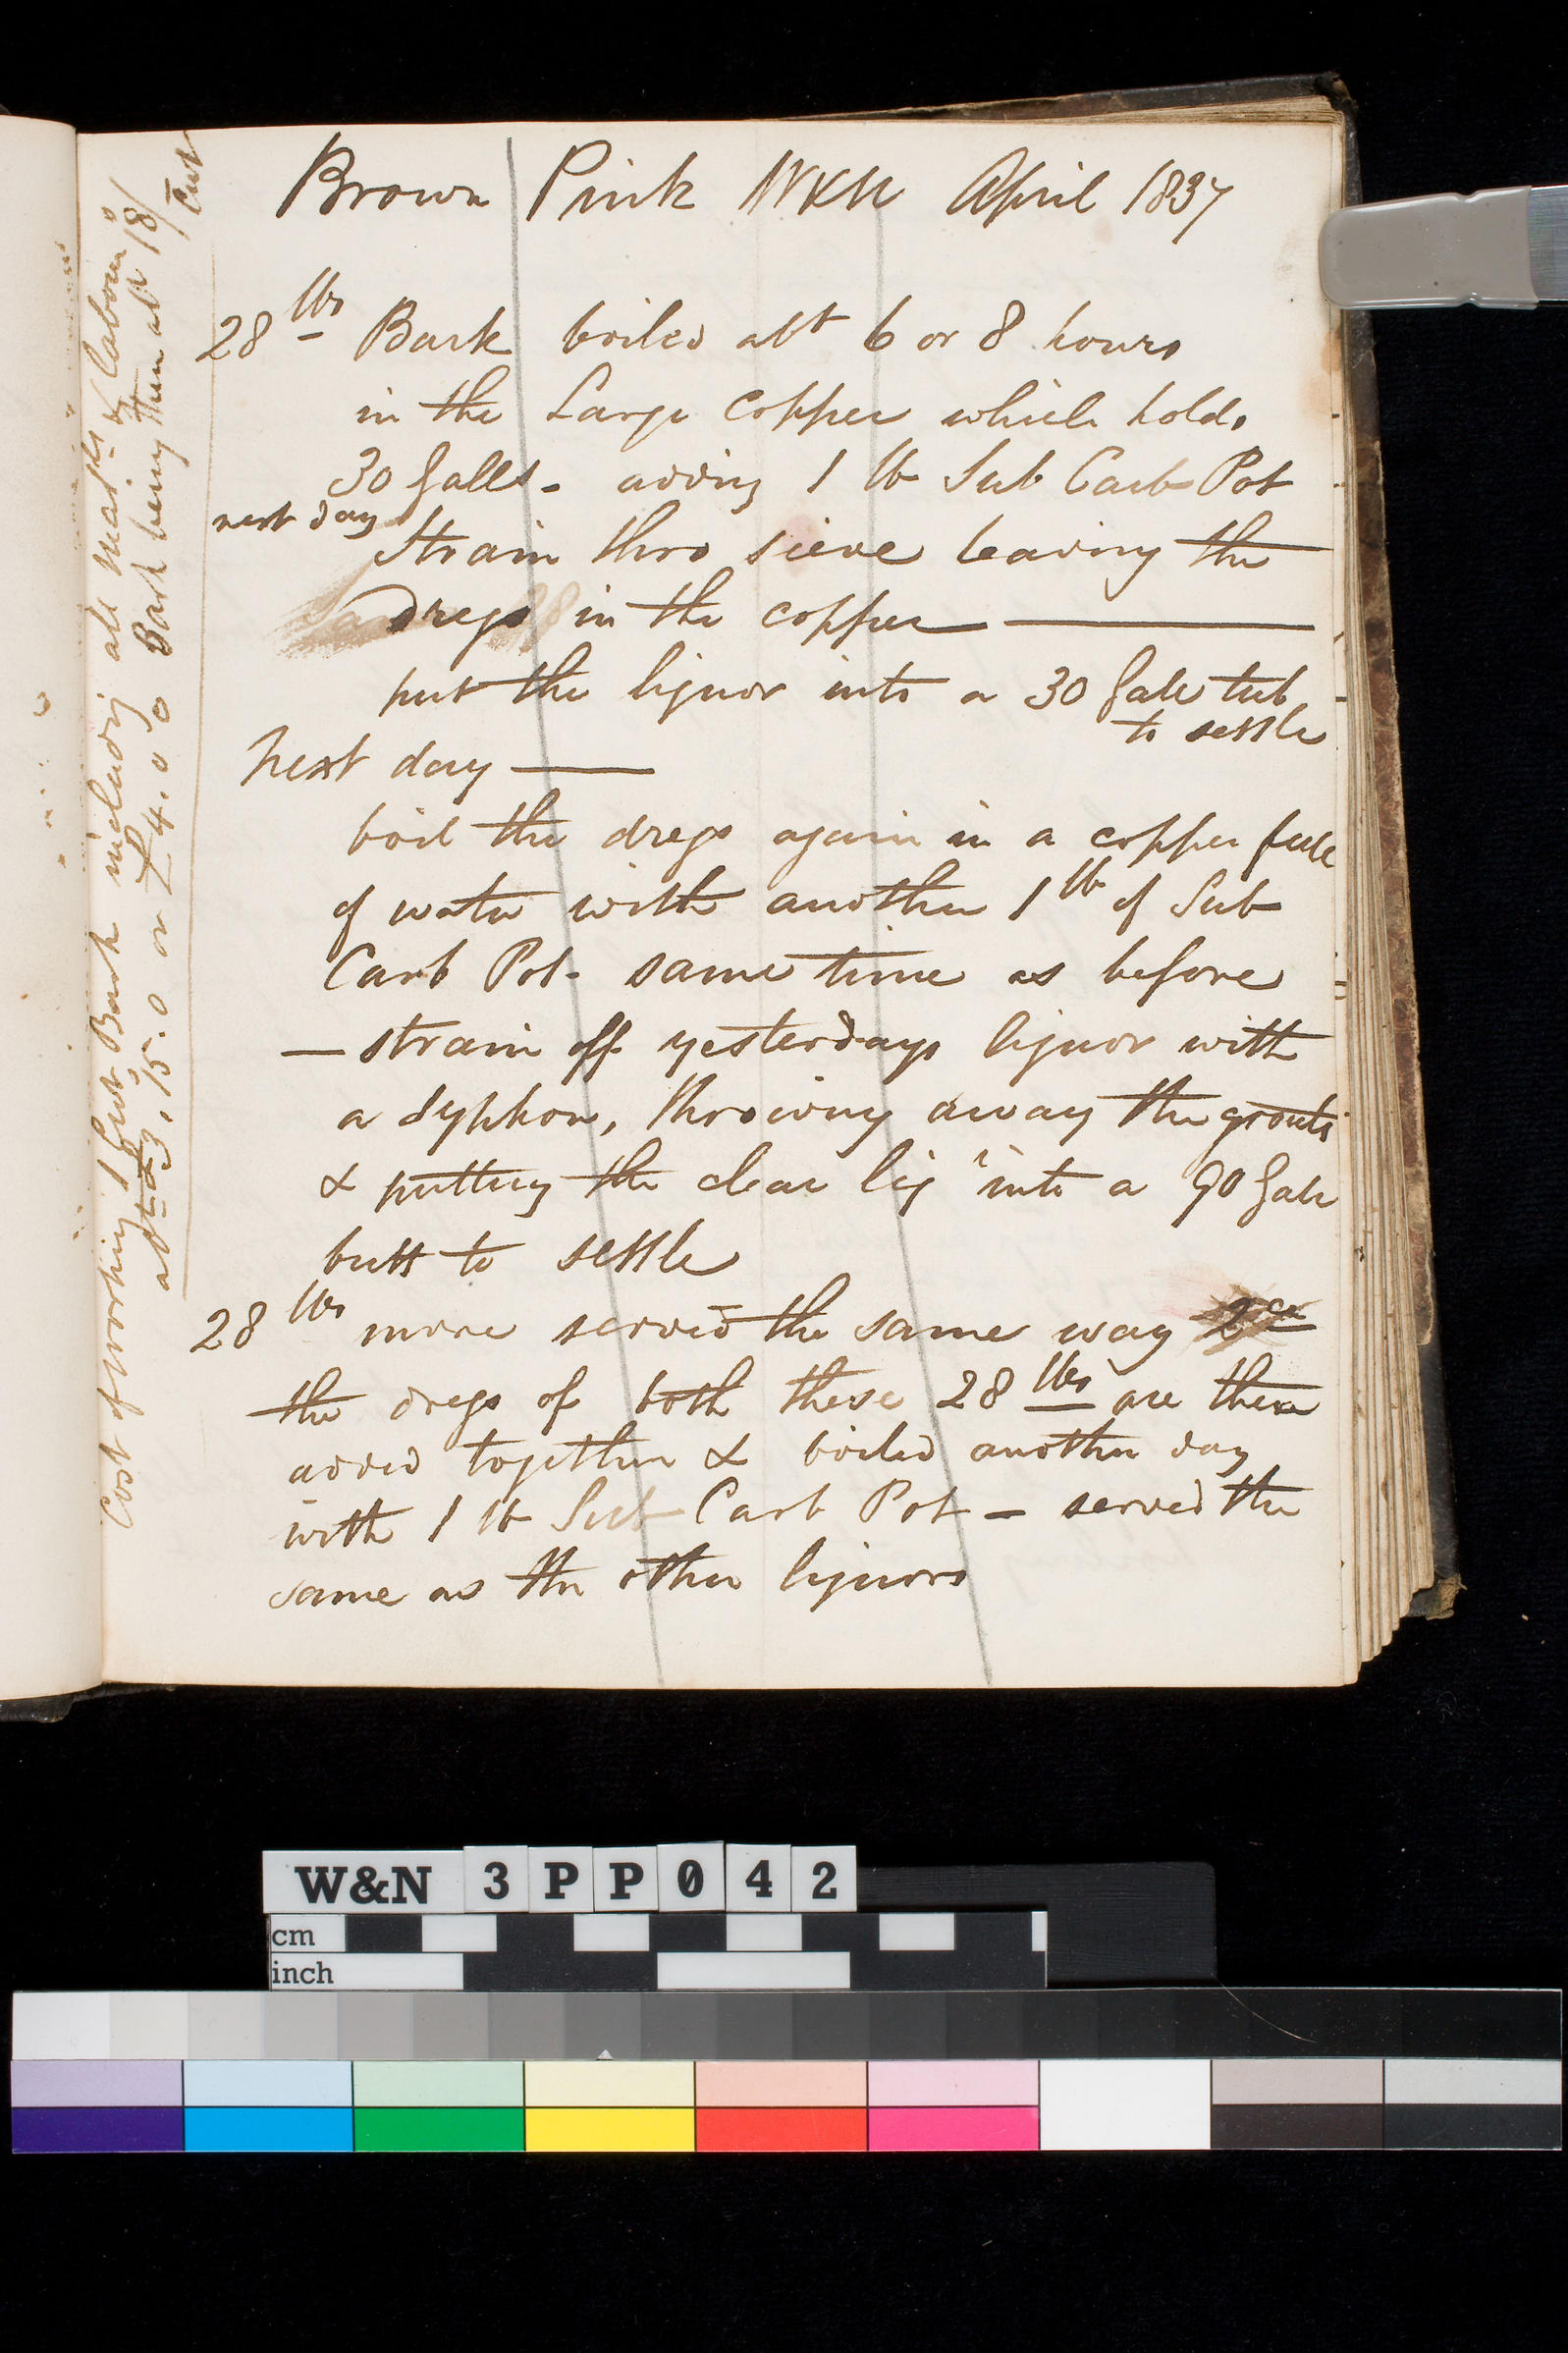 Brown Pink W&N April 1837
28 lbs Bark boiled abt 6 or 8 hours
in the Large Copper which holds
30 Galls - adding 1 lb Sub Carb Pot
next day
Strain thro sieve leaving the
dregs in the copper
put the liquor into a 30 Galls tub
to settle
Next day
boil the dregs again in a copper full
of water with another 1 lb of Sub
Carb Pot - same time as before
— strain off yesterdays liquor with
a syphon, throwing away the grouts
& putting the clear liq r into a 90 Galls
butt to settle
28 lbs more served the same way
the dregs of both these 28 lbs are then
added together & boiled another day
with 1 lb Sub Carb Pot — served the
same as the other liquors
Cost of working 1 Cwt Bark including all Mats & Labour
abt £3.15.0 or £4.0.0 Bark being then abt 18/
Cwt
W&N 3PP042
cm
inch